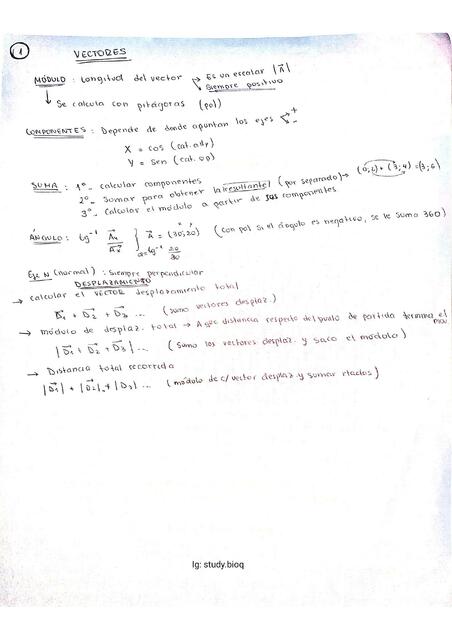 1
VECTORES
MÓDULO : Longitud del vector → Es un escalar |A⃗|
Siempre positivo
Se calcula con pitágoras (pol)
COMPONENTES : Depende de donde apuntan los ejes + -
X = cos (cat. ady)
Y = sen (cat. op)
SUMA : 1º - calcular componentes
2º - Sumar para obtener la resultante (por separado) → (0,2) + (3,4) = (3,6)
3º - Calcular el módulo a partir de sus componentes
ÁNGULO : tg⁻¹ A⃗y/A⃗x } A⃗ = (30,20) (con pol si el ángulo es negativo, se le suma 360)
α = tg⁻¹ 20/30
Eje N (normal) : Siempre perpendicular
DESPLAZAMIENTO
→ calcular el VECTOR desplazamiento total
D⃗1 + D⃗2 + D⃗3 ... (sumo vectores desplaz.)
→ módulo de desplaz. total → A que distancia respecto del punto de partida termina el mov
|D⃗1 + D⃗2 + D⃗3| ... (Sumo los vectores desplaz. y saco el módulo)
→ Distancia total recorrida
|D⃗1| + |D⃗2| + |D⃗3| ... (módulo de c/ vector desplaz y sumar rtados)
Ig: study.bioq